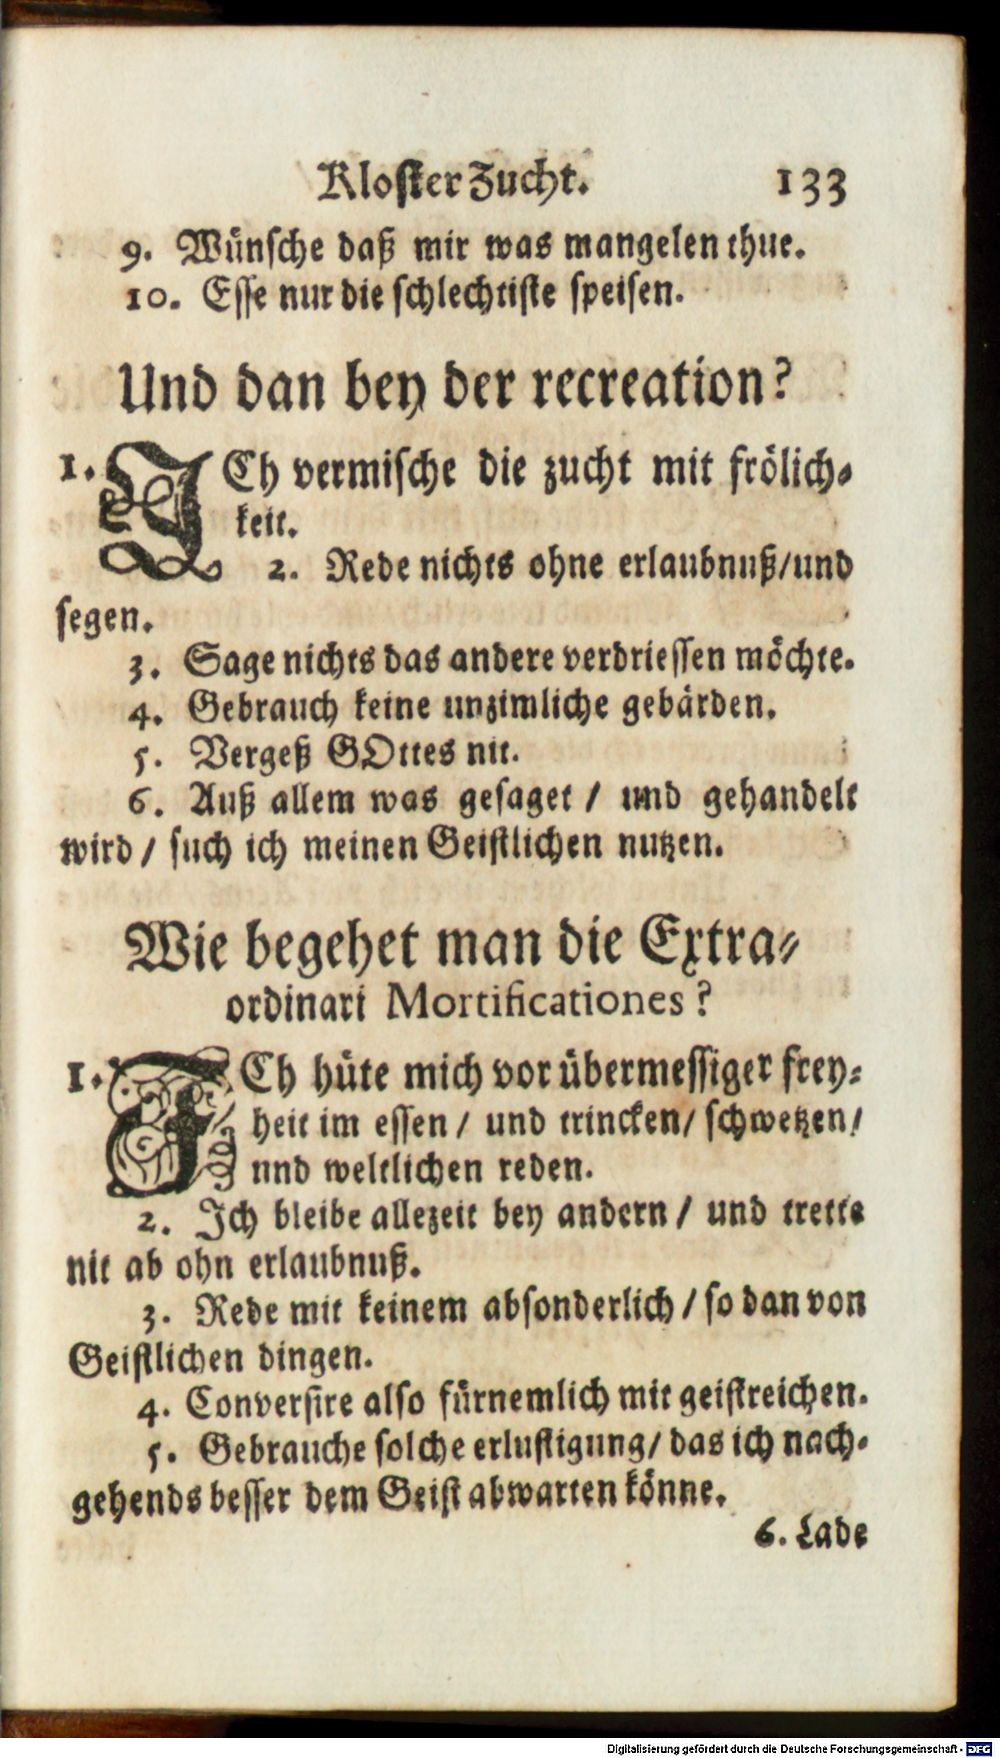 Kloster Zucht. 133
9. Wünsche daß mir was mangelen thue.
10. Esse nur die schlechtiste speisen.
Und dan bey der recreation?
1. ICh vermische die zucht mit frölich⸗
keit.
2. Rede nichts ohne erlaubnuß/und
segen.
3. Sage nichts das andere verdriessen möchte.
4. Gebrauch keine unzimliche gebärden.
5. Vergeß GOttes nit.
6. Auß allem was gesaget / und gehandelt
wird / such ich meinen Geistlichen nutzen.
Wie begehet man die Extra⸗
ordinari Mortificationes?
1. ICh hüte mich vor übermessiger frey⸗
heit im essen / und trincken/ schwetzen/
nnd weltlichen reden.
2. Ich bleibe allezeit bey andern / und trette
nit ab ohn erlaubnuß.
3. Rede mit keinem absonderlich / so dan von
Geistlichen dingen.
4. Conversire also fürnemlich mit geistreichen.
5. Gebrauche solche erlustigung/ das ich nach⸗
gehends besser dem Geist abwarten könne.
6. Lade
Digitalisierung gefördert durch die Deutsche Forschungsgemeinschaft - DFG